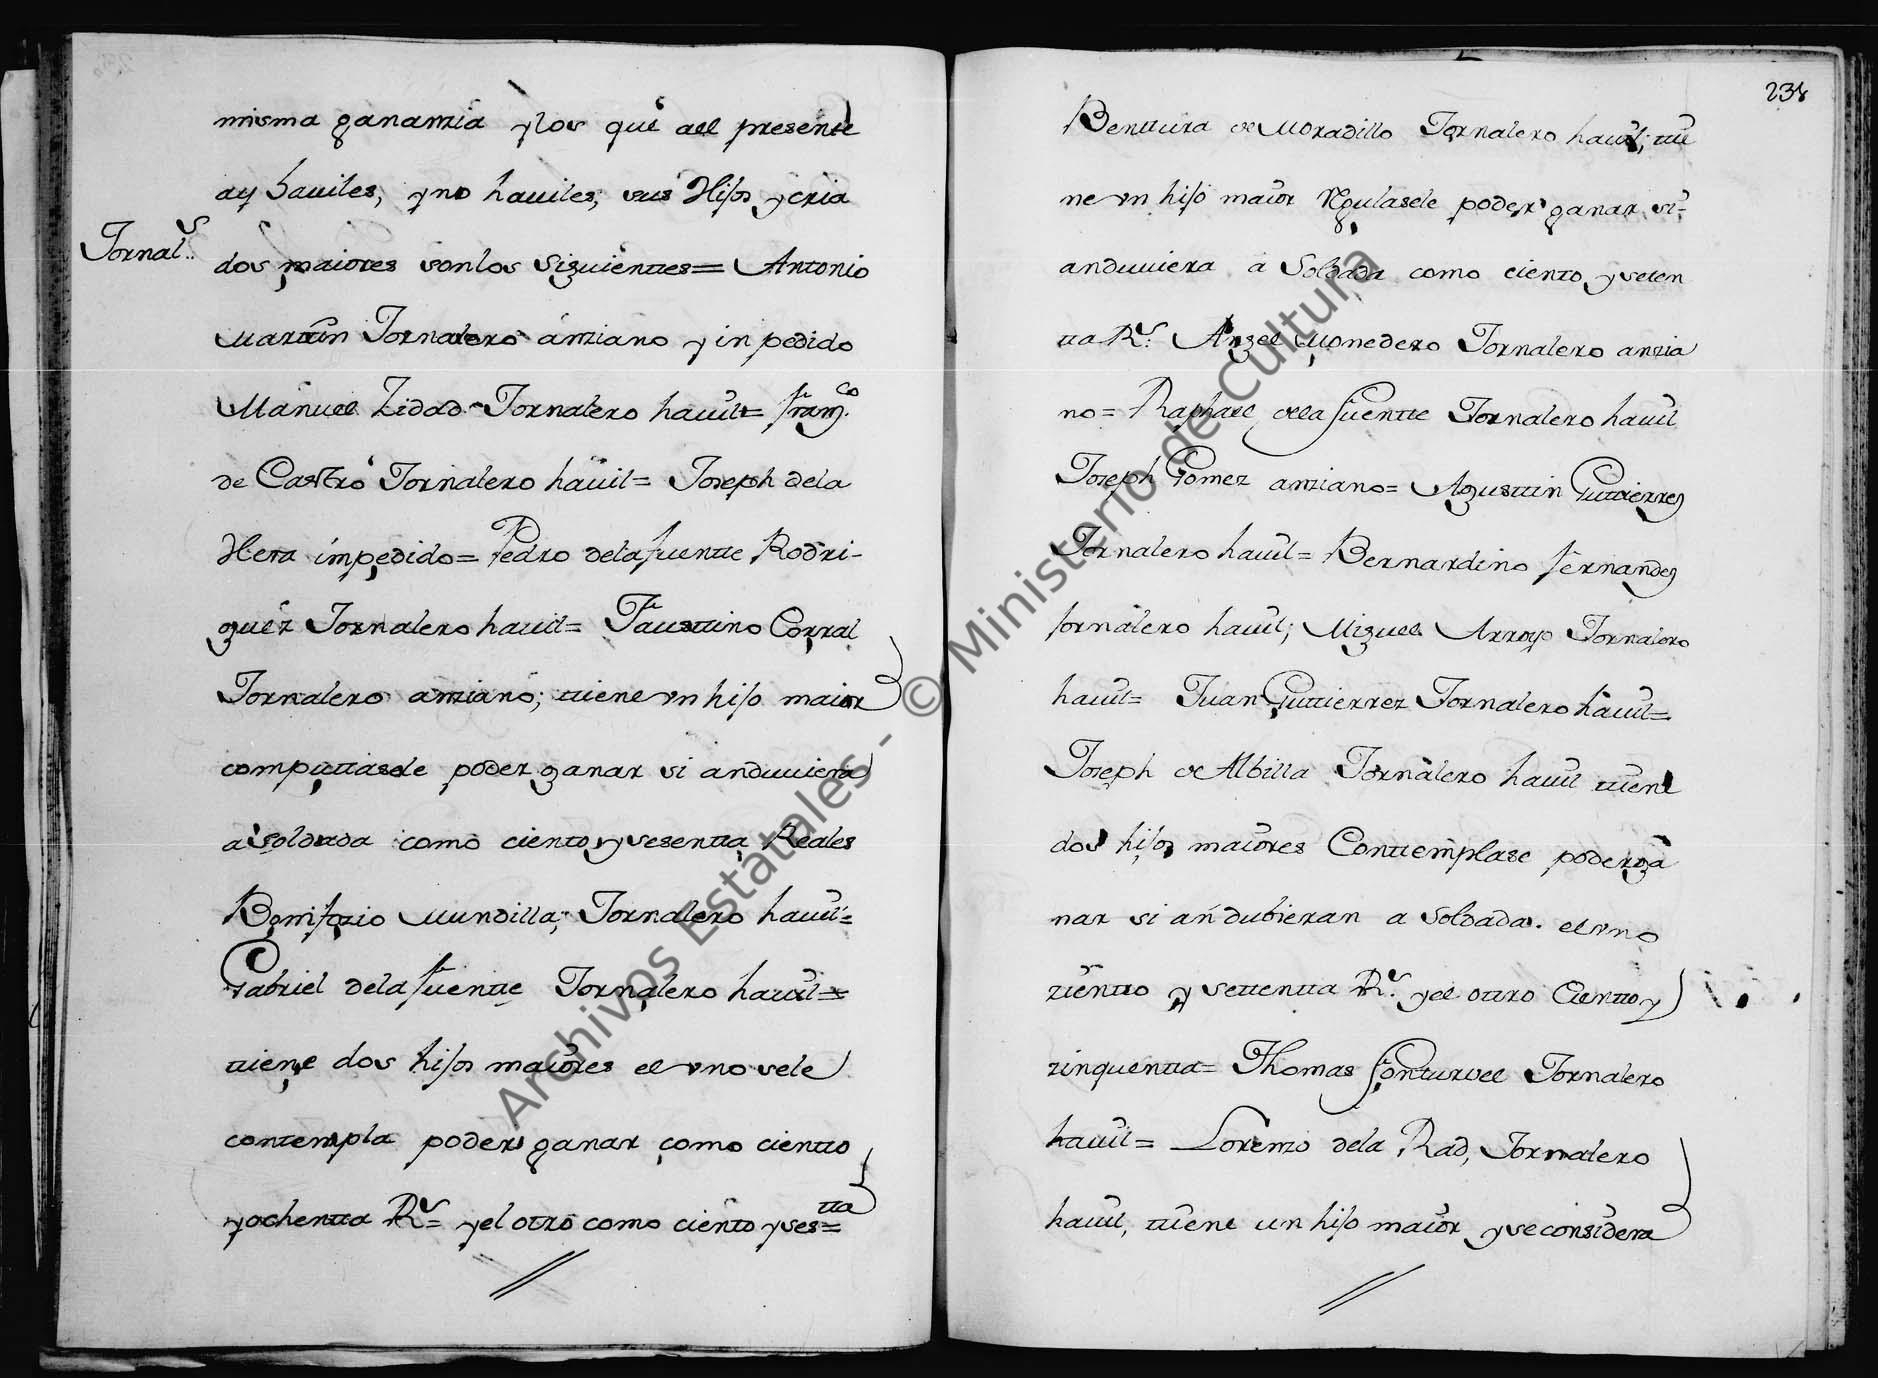 misma gananzia y los que all presente
ay haviles, y no haviles, sus Hijos y cria
Jornal.s
dos maiores son los siguientes= Antonio
Martin Jornalero anziano y inpedido
Manuel Zidad Jornalero havil= Fran.co
de Castro Jornalero havil= Joseph dela
Hera impedido= Pedro dela fuentte Rodri-
guez Jornalero havil= Fausttino Corral
Jornalero anziano; ttiene vn hijo maior
computtasele poder ganar si anduviera
a soldada como ciento y sesentta Reales
Bonifazio Mundilla; Jornalero havil=
Gabriel dela fuentte Jornalero havil=
ttiene dos hijos maiores el vno sele
contempla poder ganar como cientto
y ochentta R.s= y el otro como ciento y ses=tta
238
Benttura de Moradillo Jornalero havil; ttie
ne vn hijo maior Regulasele poder ganar si-
anduviera a Soldada como ciento y seten
tta R.s Angel Monedero Jornalero anzia
no= Raphael dela fuentte Jornalero havil
Joseph Gomez anziano= Agusttin Guttierrez
Jornalero havil= Bernardino fernandez
Jornalero havil; Miguel Arroyo Jornalero
havil= Juan Guttierrez Jornalero havil=
Joseph de Albilla Jornalero havil ttiene
dos hijos maiores Conttemplase poder ga
nar si andubieran a Soldada. el vno
zientto y settentta R.s y el ottro Cientto y
zinquentta= Thomas fonturvel Jornalero
havil= Lorenzo dela Rad, Jornalero
havil, ttiene un hijo maior y se considera
Archivos Estatales - © Ministerio de Cultura